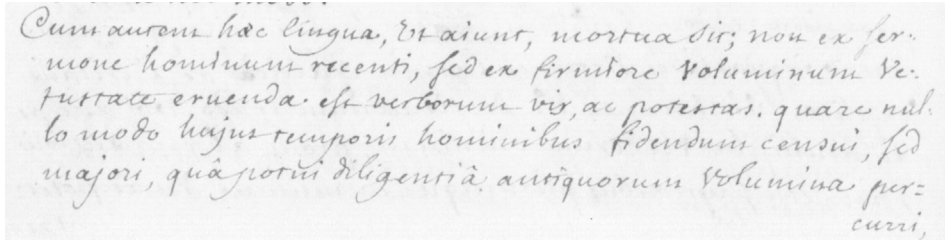 Cum autem hæc lingua, Ut aiunt, mortua sit; non ex ser-
mone hominum recenti, sed ex firmiore Voluminum Ve-
tustate eruenda est verborum vis, ac potestas. quare nul-
lo modo hujus temporis hominibus fidendum censui, sed
majori, quâ potui diligentiâ antiquorum Volumina per=
curri,